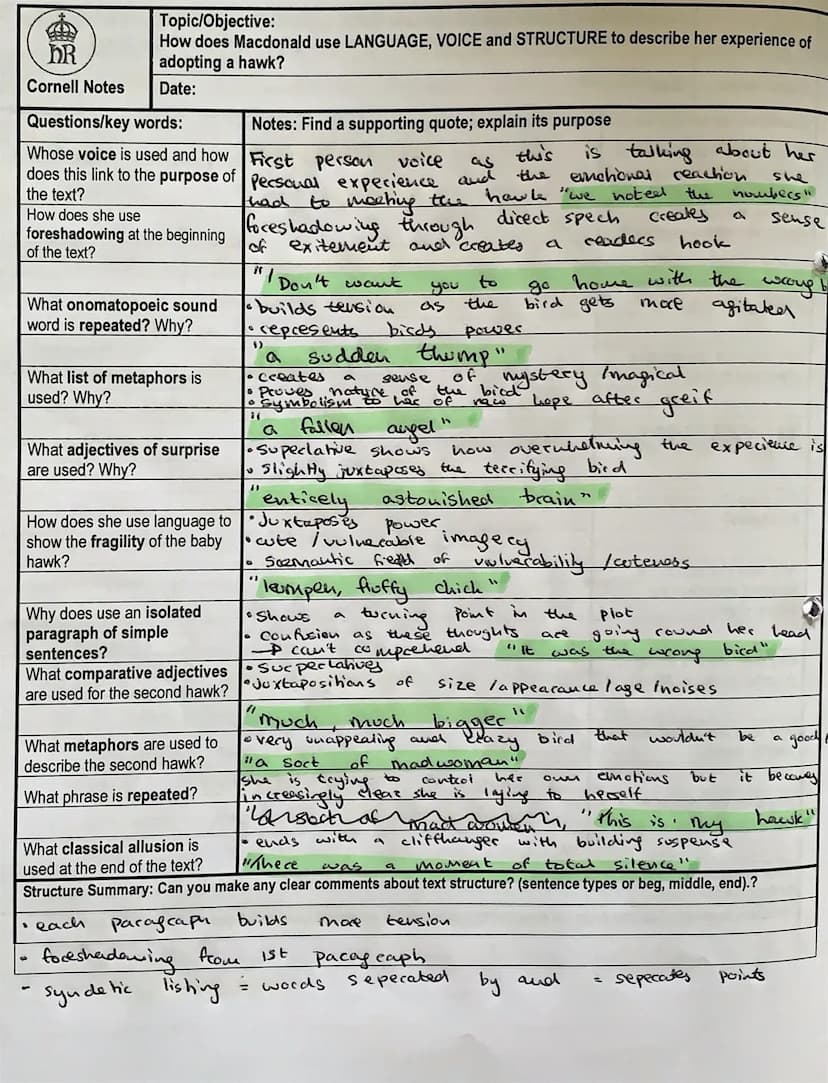 Topic/Objective:
How does Macdonald use LANGUAGE, VOICE and STRUCTURE to describe her experience of
adopting a hawk?
HR
Cornell Notes
Date:
Questions/key words:
Notes: Find a supporting quote; explain its purpose
Whose voice is used and how
does this link to the purpose of
the text?
First person voice as this is talking about her
Personal experience and the emotional reaction she
had to meeting the hawk "we noted the numbers"
How does she use
foreshadowing at the beginning
of the text?
foreshadowing through direct spech creates a sense
of exitement and creates a readers hook
"I Don't want you to go home with the wrong b
What onomatopoeic sound
word is repeated? Why?
• builds tension as the bird gets more agitated
• represents birds power
"a sudden thump"
What list of metaphors is
used? Why?
• creates a sense of mystery /magical
• Proves nature of the bird
• Symbolism to her of new hope after greif
"a fallen angel"
What adjectives of surprise
are used? Why?
• superlative shows how overwhelming the experience is
• slightly juxtaposes the terrifying bird
"entirely astonished brain"
How does she use language to
show the fragility of the baby
hawk?
• Juxtaposes power
• cute /vulnerable imagery
• Semantic field of vulnerability /cuteness
"lumpen, fluffy chick"
Why does use an isolated
paragraph of simple
sentences?
• Shows a turning point in the plot
• confusion as these thoughts are going round her head
→ can't comprehend "It was the wrong bird"
What comparative adjectives
are used for the second hawk?
• Superlatives
• Juxtapositions of size /appearance /age /noises
"Much, much bigger"
What metaphors are used to
describe the second hawk?
• very unappealing and crazy bird that wouldn't be a good
"a sort of madwoman"
What phrase is repeated?
she is trying to control her own emotions but it becomes
increasingly clear she is lying to herself
"This is my hawk"
What classical allusion is
used at the end of the text?
• ends with a cliffhanger with building suspense
"There was a moment of total silence"
Structure Summary: Can you make any clear comments about text structure? (sentence types or beg, middle, end).?
• each paragraph builds more tension
- foreshadowing from 1st paragraph
- syndetic listing = words seperated by and = seperates points